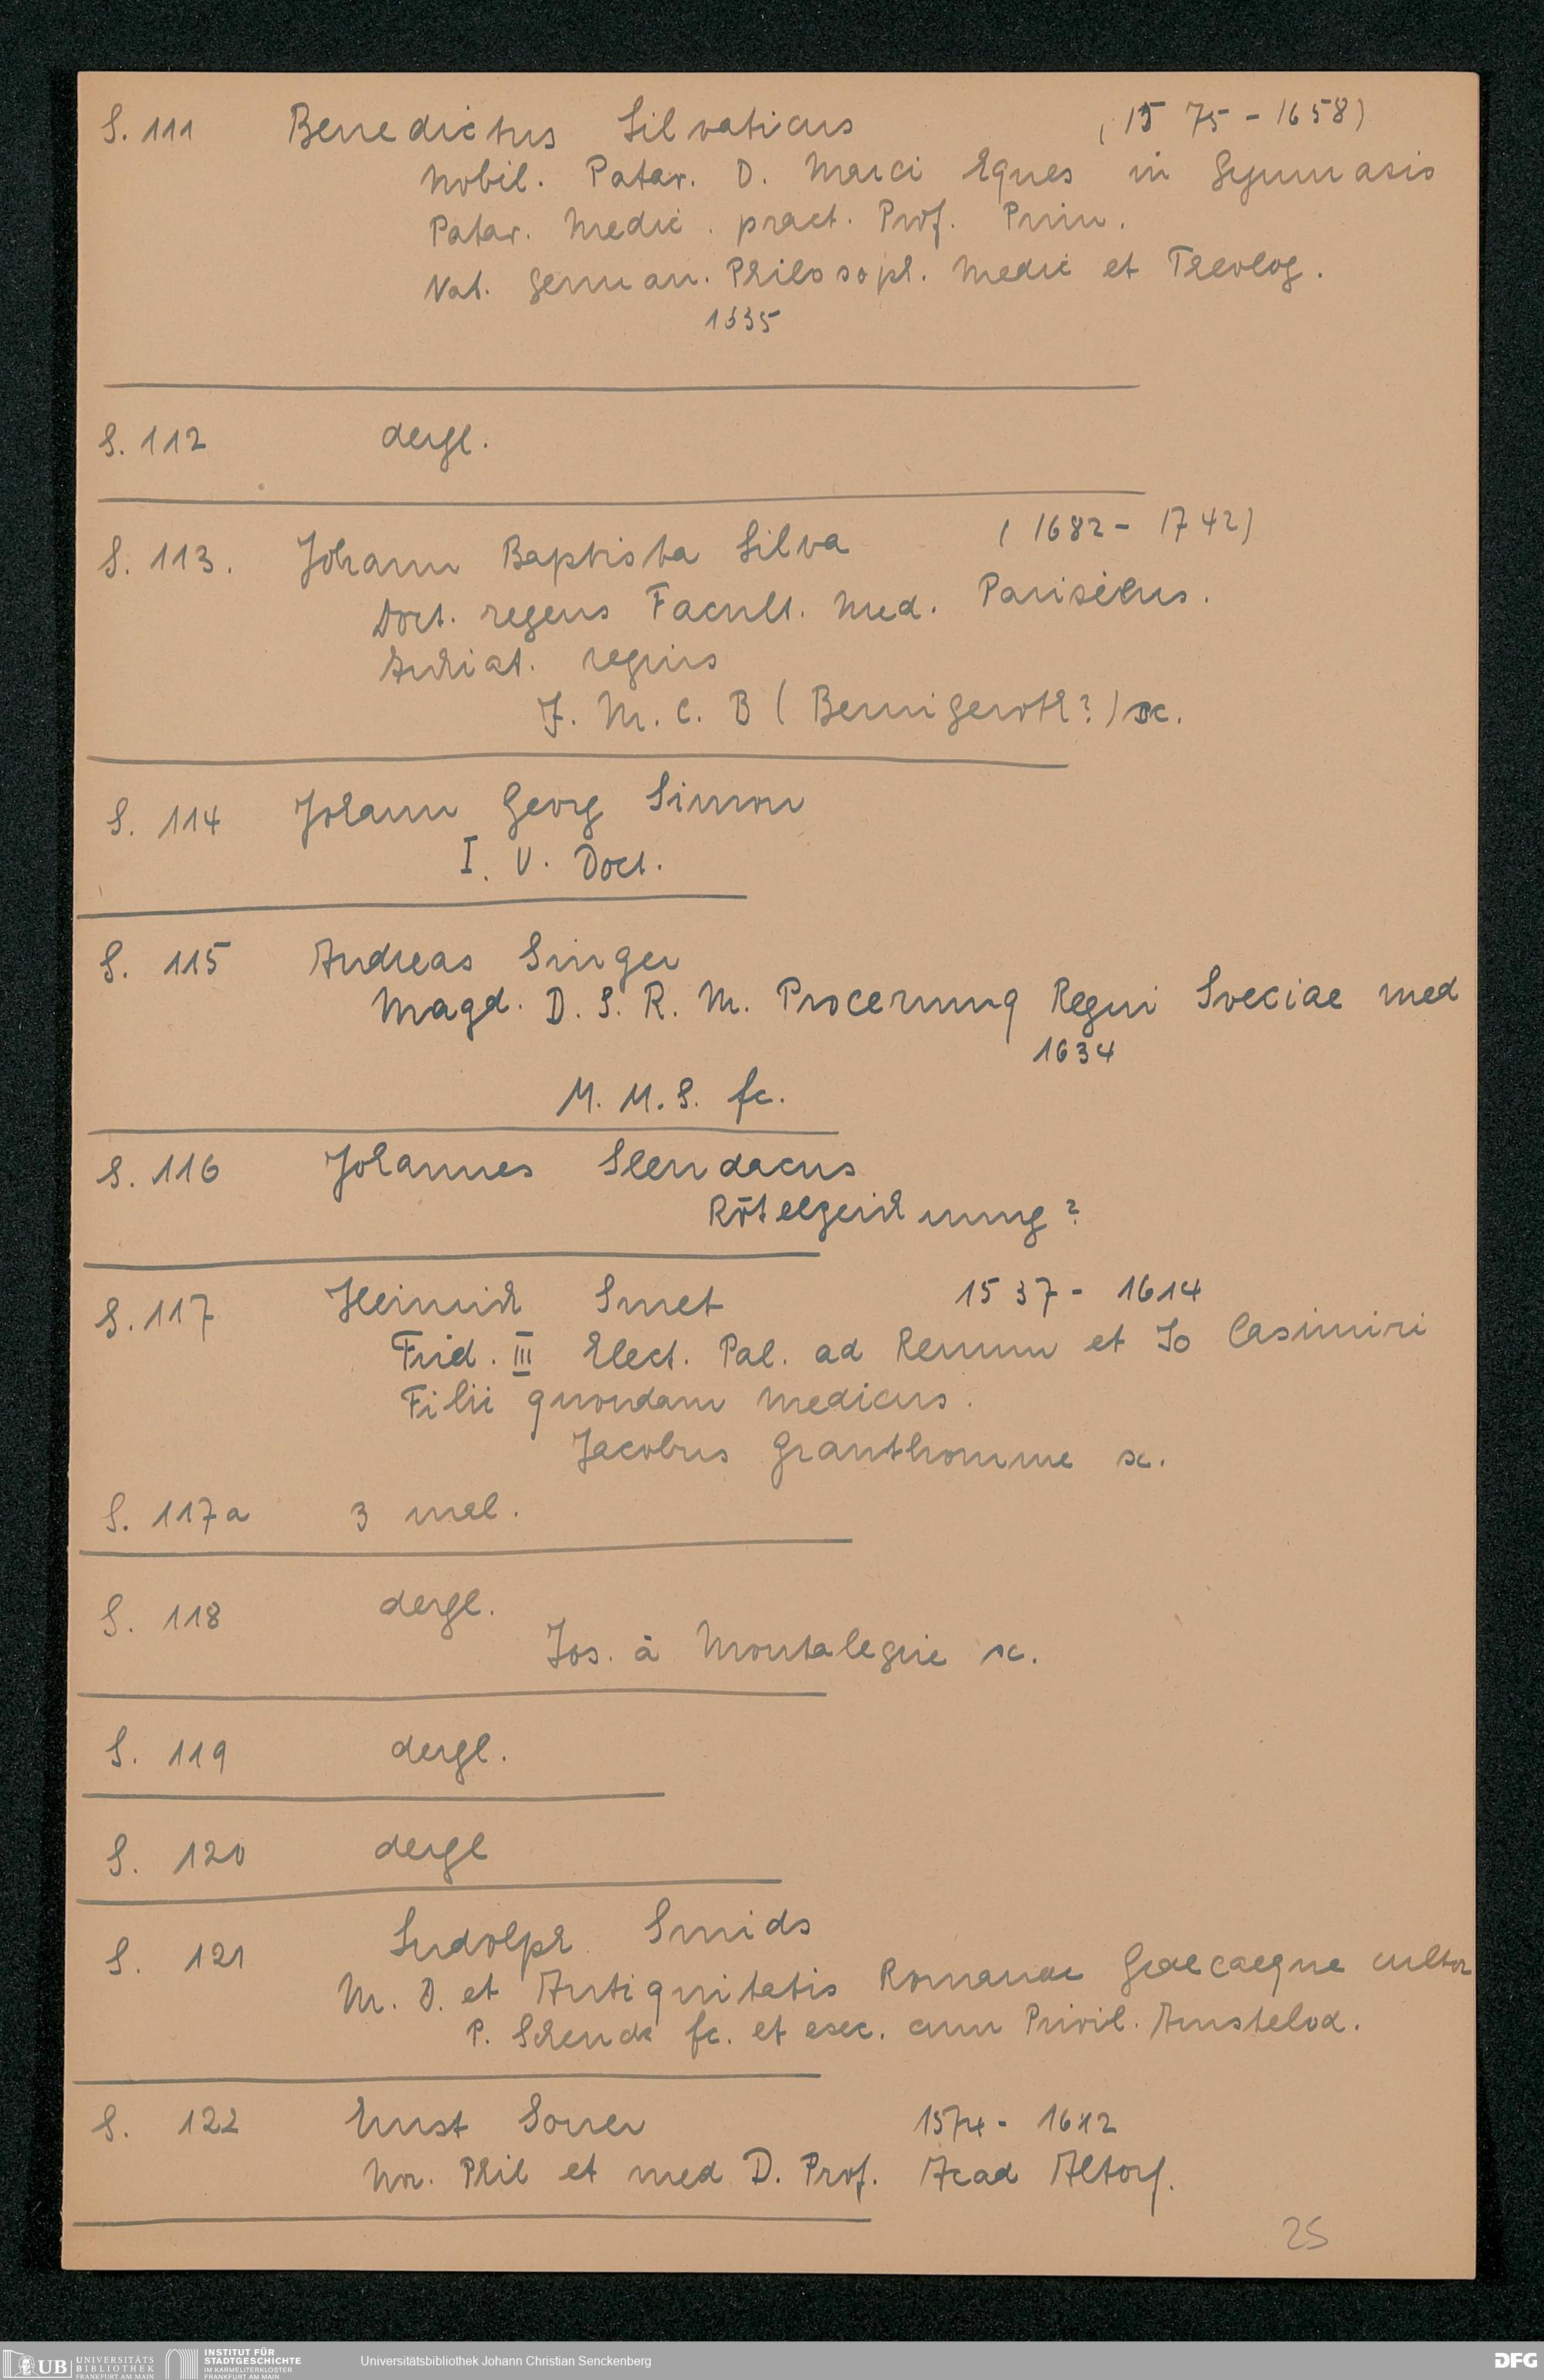 S. 111 Benedictus Silvaticus (1575 - 1658)
Nobil. Patav. D. Marci Eques in Gymnasio
Patav. Medic. pract. Prof. Prim.
Nat. German. Philosoph. Medic et Theolog.
1635
S. 112 dergl.
S. 113. Johann Baptista Silva (1682 - 1742)
Doct. regens Facult. Med. Parisiens.
Archiat. regius
J. M. C. B (Bernigeroth?) sc.
S. 114 Johann Georg Simon
I. V. Doct.
S. 115 Andreas Singer
Magd. D. S. R. M. Procerumq Regni Sveciae med
1634
M. M. S. fc.
S. 116 Johannes Slendacus
Rötelzeichnung?
S. 117 Heinrich Smet 1537 - 1614
Frid. III Elect. Pal. ad Renum et Jo Casimiri
Filii quondam medicus.
Jacobus Granthomme sc.
S. 117a 3 mal.
S. 118 dergl.
Jos. à Montalegre sc.
S. 119 dergl.
S. 120 dergl
S. 121 Ludolph Smids
M. D. et Antiquitatis Romanae Graecaeque cultor
P. Schenck fc. et exec. cum Privil. Amstelod.
S. 122 Ernst Soner 1572 - 1612
Nor. Phil et med D. Prof. Acad Altorf.
25
UB UNIVERSITÄTS BIBLIOTHEK FRANKFURT AM MAIN
INSTITUT FÜR STADTGESCHICHTE IM KARMELITERKLOSTER FRANKFURT AM MAIN
Universitätsbibliothek Johann Christian Senckenberg
DFG